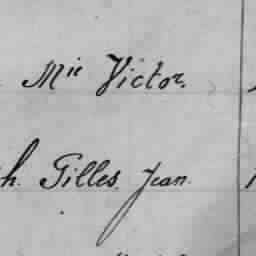 Mie Victor.
h. Gilles. Jean.